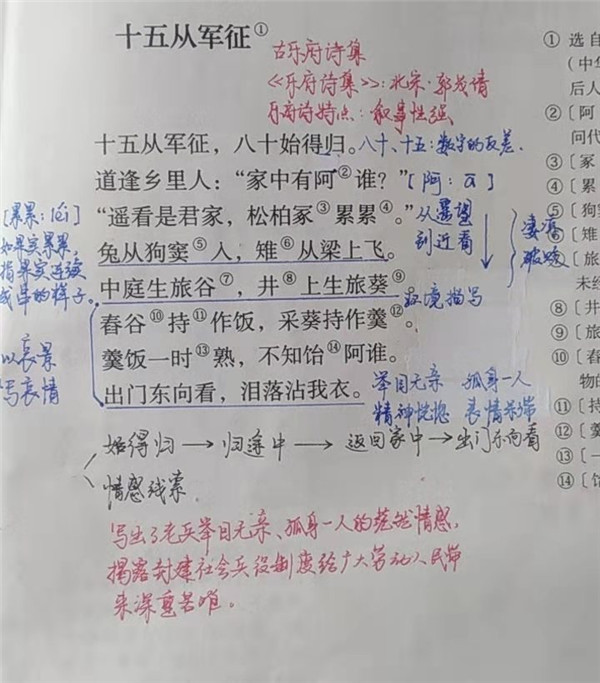 十五从军征①
古乐府诗集
《乐府诗集》：北宋·郭茂倩
乐府诗特点：叙事性强
十五从军征，八十始得归。
八十、十五：数字的反差.
道逢乡里人：“家中有阿②谁？”
[阿：ā]
“遥看是君家，松柏冢③累累④。”
从遥望
到近看
凄凉
[累累：léi]
如果实累累,
指果实连缀
成串的样子.
兔从狗窦⑤入，雉⑥从梁上飞。
中庭生旅谷⑦，井⑧上生旅葵⑨
环境描写
舂谷⑩持⑪作饭，采葵持作羹⑫。
羹饭一时⑬熟，不知饴⑭阿谁。
出门东向看，泪落沾我衣。
以哀景
写哀情
举目无亲 孤身一人
精神恍惚 表情呆滞
始得归→归途中→返回家中→出门东向看
情感线索
写出了老兵举目无亲、孤身一人的茫然情感,
揭露封建社会兵役制度给广大劳动人民带
来深重苦难。
① 选自
(中华
后人
② 〔阿
问代
③ 〔家
④ 〔累
⑤ 〔狗
⑥ 〔雉
⑦ 〔旅
未经
⑧ 〔井
⑨ 〔旅
⑩ 〔舂
物的
⑪ 〔持
⑫ 〔羹
⑬ 〔一
⑭ 〔饴